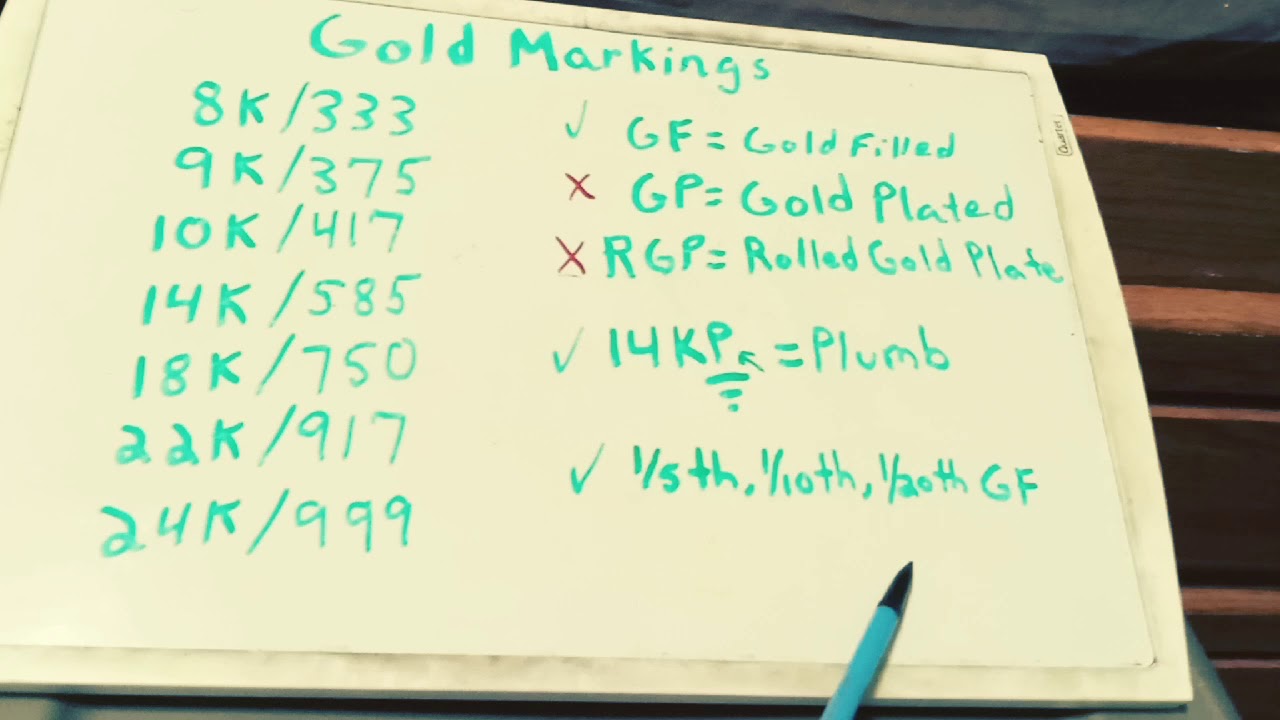 Gold Markings
8K/333
9K/375
10K/417
14K/585
18K/750
22K/917
24K/999
✓ GF = Gold Filled
X GP = Gold Plated
X RGP = Rolled Gold Plate
✓ 14KP = Plumb
✓ 1/5th, 1/10th, 1/20th GF
Quartet